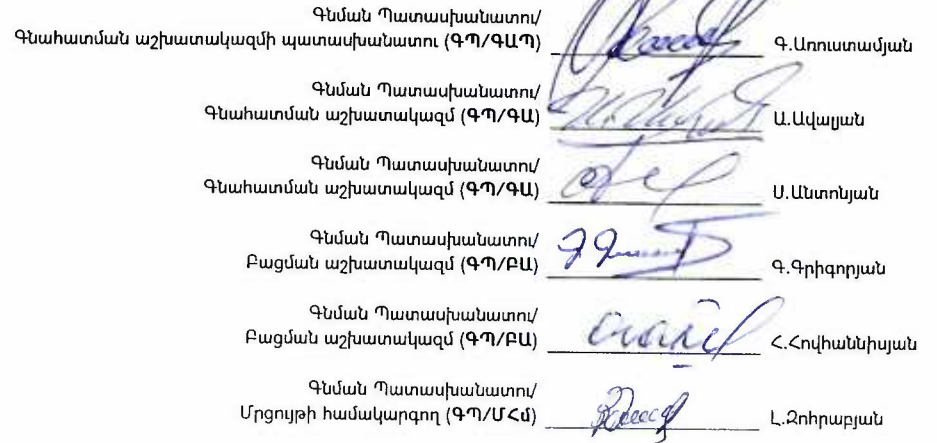 Գնման Պատասխանատու/
Գնահատման աշխատակազմի պատասխանատու (ԳՊ/ԳԱՊ) Գ.Առուստամյան
Գնման Պատասխանատու/
Գնահատման աշխատակազմ (ԳՊ/ԳԱ) Ա.Ավալյան
Գնման Պատասխանատու/
Գնահատման աշխատակազմ (ԳՊ/ԳԱ) Ս.Անտոնյան
Գնման Պատասխանատու/
Բացման աշխատակազմ (ԳՊ/ԲԱ) Գ.Գրիգորյան
Գնման Պատասխանատու/
Բացման աշխատակազմ (ԳՊ/ԲԱ) Հ.Հովհաննիսյան
Գնման Պատասխանատու/
Մրցույթի համակարգող (ԳՊ/ՄՀմ) Լ.Զոհրաբյան